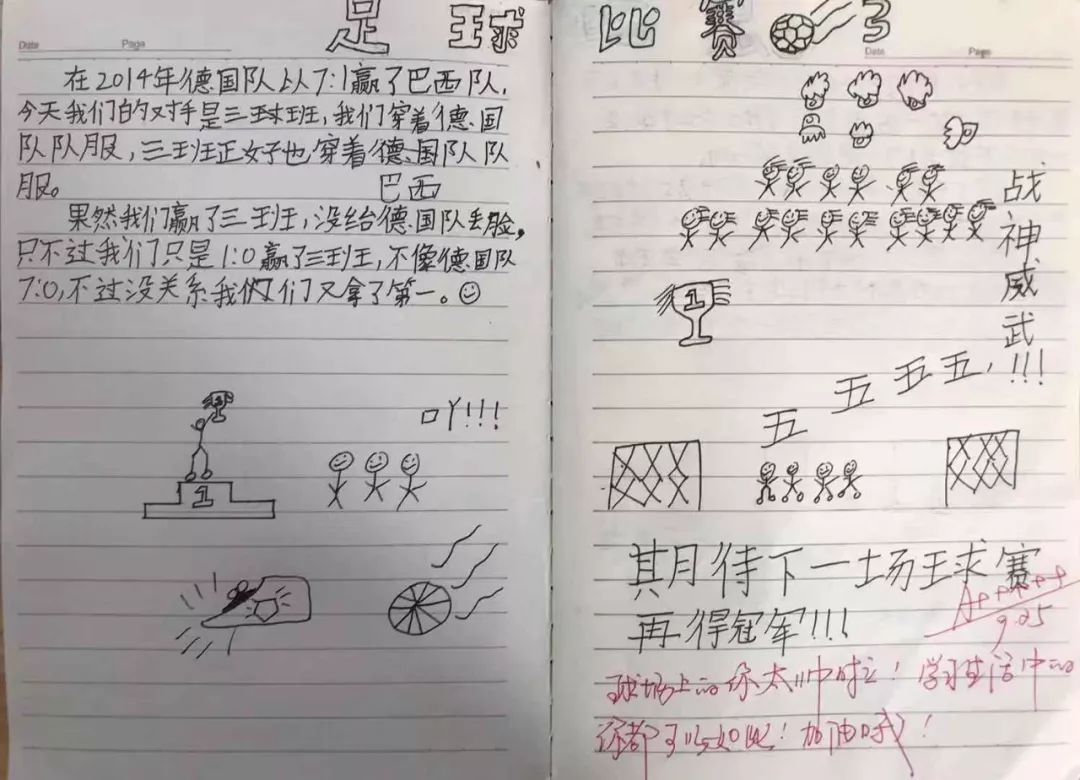 Date Page
足 球
在2014年德国队以7:1赢了巴西队,
今天我们的对手是三班,我们穿着德国
队队服,三班正好也穿着德国队队
服。 巴西
果然我们赢了三班,没给德国队丢脸,
只不过我们只是1:0赢了三班,不像德国队
7:0,不过没关系我们们又拿了第一。
吖!!!
1
比 赛 3
Date Page
战神威武!!!
1
五 五 五 五,
期待下一场球赛
再得冠军!!!
A+++++
9.25
球场上的你太!学习生活中的
你都可以如此!加油哦!